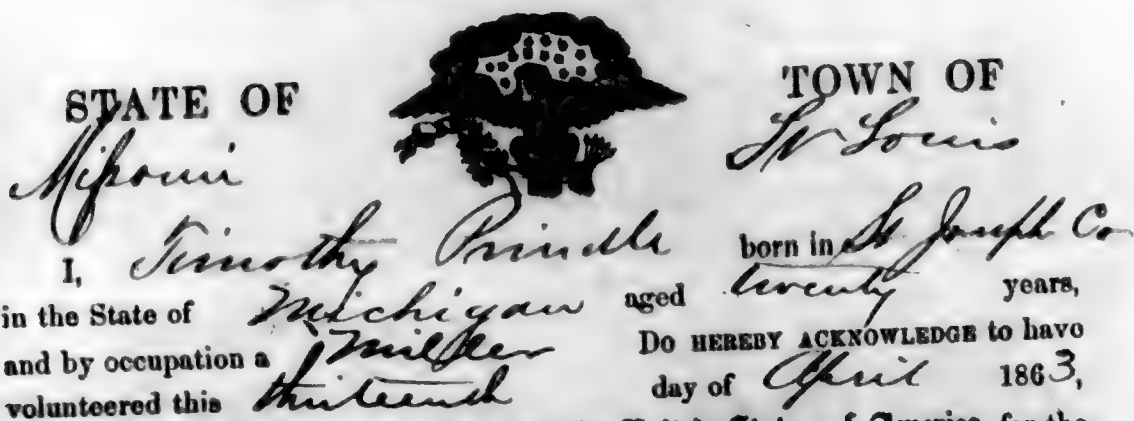 STATE OF TOWN OF
Missouri St Louis
I, Timothy Prindle born in St Joseph Co
in the State of Michigan aged twenty years,
and by occupation a Do HEREBY ACKNOWLEDGE to have
volunteered this thirteenth day of April 1863,
United States of America for the